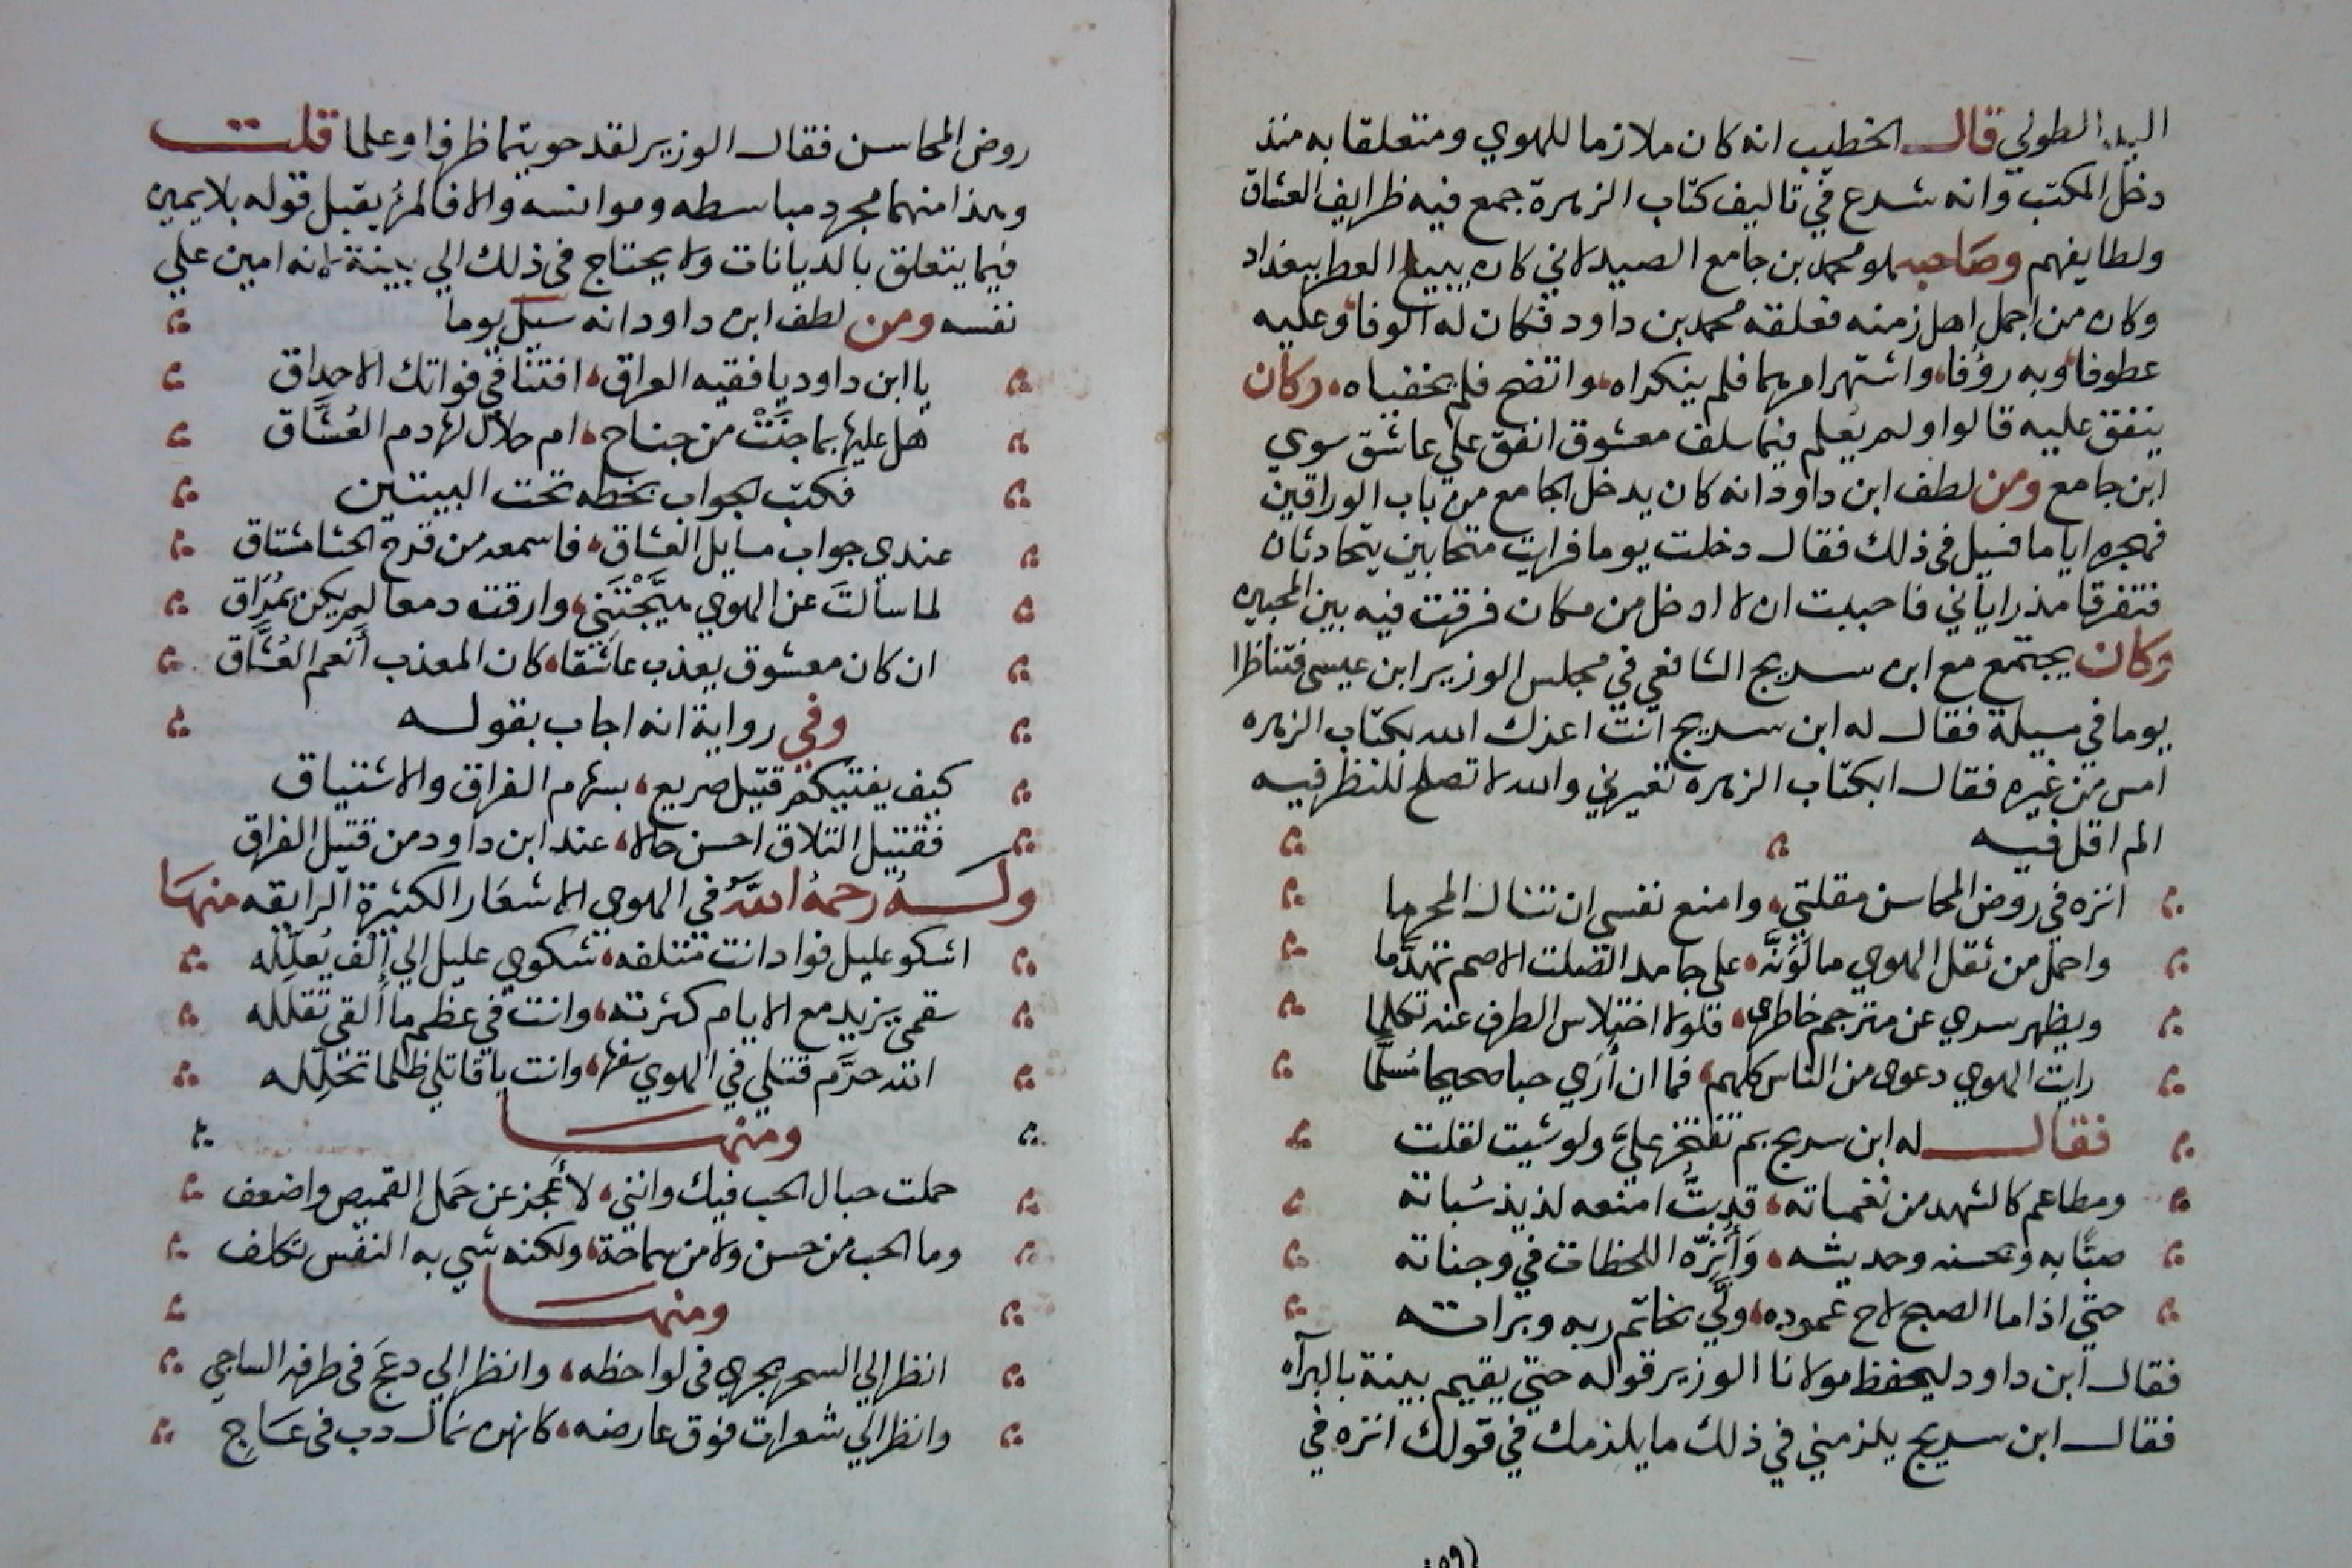 اليد الطولي قال الخطيب انه كان ملازما للهوي ومتعلقا به منذ
دخل المكتب وانه شرع في تاليف كتاب الزهرة جمع فيه ظرايف العشاق
ولطايفهم وصاحبه هو محمد بن جامع الصيدلاني كان يبيع العطر ببغداد
وكان من اجمل اهل زمنه فعلقه محمد بن داود فكان له الوفا وعليه
عطوفا وبه رؤفا واشتهر امرهما فلم ينكراه واتضح فلم يخفياه وكان
ينفق عليه قالوا ولم يعلم فيما سلف معشوق انفق علي عاشق سوي
ابن جامع ومن لطف ابن داود انه كان يدخل الجامع من باب الوراقين
فهجره اياما فسيل في ذلك فقال دخلت يوما فرايت متحابين يتحادثان
فتفرقا مذ راياني فاحببت ان لا ادخل من مكان فرقت فيه بين المحبين
وكان يجتمع مع ابن سريج الشافعي في مجلس الوزير ابن عيسى فتناظرا
يوما في مسيلة فقال له ابن سريج انت اعزك الله بكتاب الزهره
امس من غيره فقال ابكتاب الزهره تعيرني والله لا تصلح للنظر فيه
الم اقل فيه
انزه في روض المحاسن مقلتي وامنع نفسي ان تنال المحرما
واحمل من ثقل الهوي ما لو انه على جامد الصلت الاصم تهدما
ويظهر سري عن مترجم خاطري فلولا اختلاس الطرف عنه تكلما
رايت الهوي دعوى من الناس كلهم فما ان أرى حبا صحيحا مسلما
فقال له ابن سريج بم تفتخر علي ولو شيت لقلت
ومطاعم كالشهد من نغماته قد بت امنعه لذيذ سباته
صبا به وبحسنه وحديثه وأنزه اللحظات في وجناته
حتي اذا ما الصبح لاح عموده ولي بخاتم ربه وبراته
فقال ابن داود ليحفظ مولانا الوزير قوله حتي يقيم بينة بالبراه
فقال ابن سريج يلزمني في ذلك ما يلزمك في قولك انزه في
روض المحاسن فقال الوزير لقد حويتما ظرفا وعلما قلت
وهذا منهما مجرد مباسطه وموانسه والا فالمرء يقبل قوله بلا يمين
فيما يتعلق بالديانات ولا يحتاج في ذلك الي بينة لانه امين علي
نفسه ومن لطف ابن داود انه سيل يوما
يا ابن داود يا فقيه العراق افتنا في فواتك الاحداق
هل عليها بما جنت من جناح ام حلال لها دم العشاق
فكتب الجواب بخطه تحت البيتين
عندي جواب مسايل العشاق فاسمعه من قرح الحشا مشتاق
لما سالت عن الهوي هيجتني وارقت دمعا لم يكن بمراق
ان كان معشوق يعذب عاشقا كان المعذب أنعم العشاق
وفي رواية انه اجاب بقوله
كيف يفتيكم قتيل صريع بسهام الفراق والاشتياق
فقتيل التلاق احسن حالا عند ابن داود من قتيل الفراق
وله رحمه الله في الهوي الاشعار الكثيرة الرايقه منها
اشكو عليل فواد انت متلفه شكوي عليل الي إلف يعلله
سقمي يزيد مع الايام كثرته وانت في عظم ما ألقي تقلله
الله حرم قتلي في الهوي سفها وانت يا قاتلي ظلما تحلله
ومنها
حملت جبال الحب فيك وانني لأعجز عن حمل القميص واضعف
وما الحب من حسن ولا من سماحة ولكنه شي به النفس تكلف
ومنها
انظر الي السحر يجري في لواحظه وانظر الي دعج في طرفه الساجي
وانظر الي شعرات فوق عارضه كانهن نمال دب في عاج